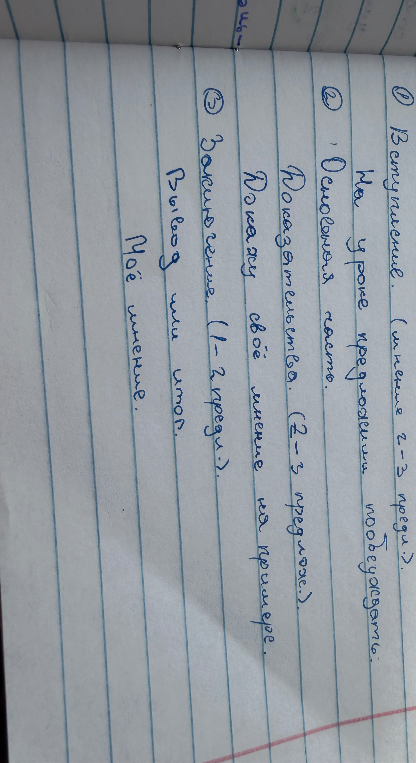 ① Вступление. (мнения 2-3 предл.).
На уроке предложили пообсуждать.
② Основная часть.
Доказательства. (2-3 предлож.).
Докажу своё мнение на примере.
③ Заключение. (1-2 предл.).
Вывод или итог.
Моё мнение.